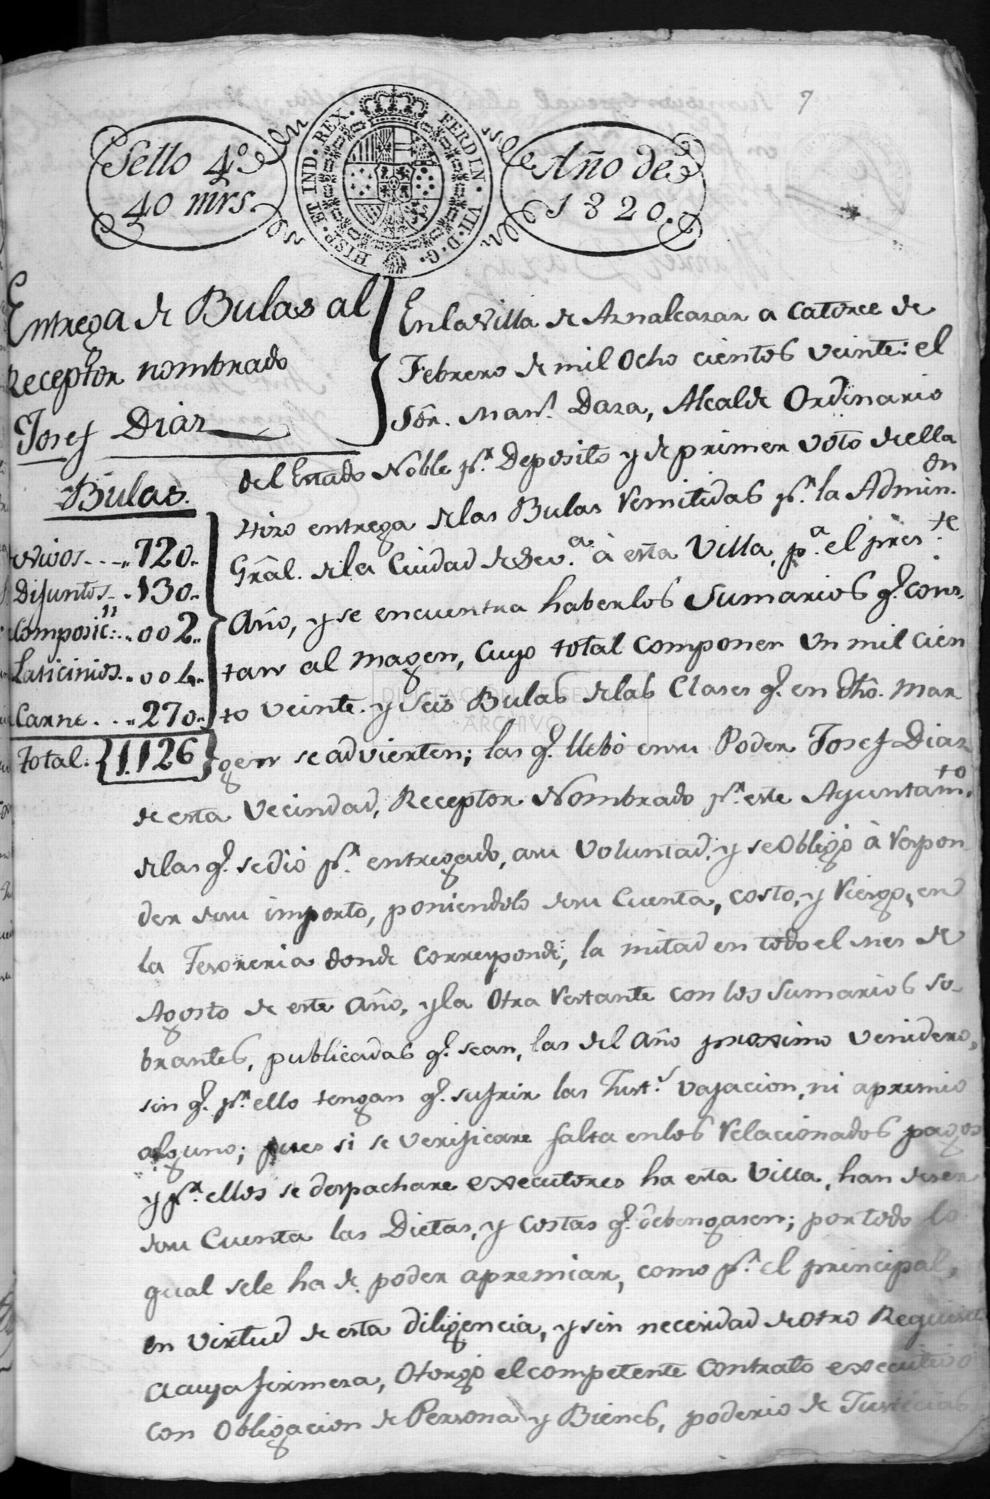 7
Sello 4º
40 mrs.
HISP. ET IND. REX. FERDIN. VII. D. G.
Año de
1820.
Entrega de Bulas al
Receptor nombrado
Josef Diaz
Bulas.
vivos... 720..
Difuntos.. 130..
composic.n.. 002..
Laticinios.. 004..
Carne... 270..
total. 1.126
En la villa de Aznalcazar a catorce de
Febrero de mil ocho cientos veinte: el
Sôr. Man.l Daza, Alcalde Ordinario
del Estado Noble p.r Deposito y de primer voto de ella
Hizo entrega de las Bulas remitidas p.r la Admin.on
Grâl. de la Ciudad de Sev.a à esta Villa, p.a el pres.te
Año, y se encuentra haberlos Sumarios q.e cons-
tan al magen, cuyo total componen un mil cien
to veinte y seis Bulas de las Clases q.e en dho. mar
gen se advierten; las q.e llebó en su Poder Josef Diaz
de esta vecindad, Receptor Nombrado p.r este Ayuntam.to
de las q.e se dio p.r entregado, a su voluntad, y se obligó à respon
der de su importo, poniendolo de su Cuenta, costo, y riesgo, en
la Tesoreria donde corresponde, la mitad en todo el mes de
Agosto de este año, y la otra restante con los sumarios so-
brantes, publicadas q.e sean, las del año proximo venidero,
sin q.e p.r ello tengan q.e sufrir las Just.s vajacion, ni apremio
alguno; pues si se verificare falta en los relacionados pagos
y p.r ellos se despachare executores ha esta villa, han de ser
de su Cuenta las Dietas, y costas q.e debengasen; por todo lo
qual sele ha de poder apremiar, como p.r el principal,
en virtud de esta diligencia, y sin necesidad de otro
a cuya firmesa, otorgó el competente contrato executivo
con obligacion de Persona y Bienes, poderio de Justicias
DIPUTACIÓN DE SEVILLA
ARCHIVO